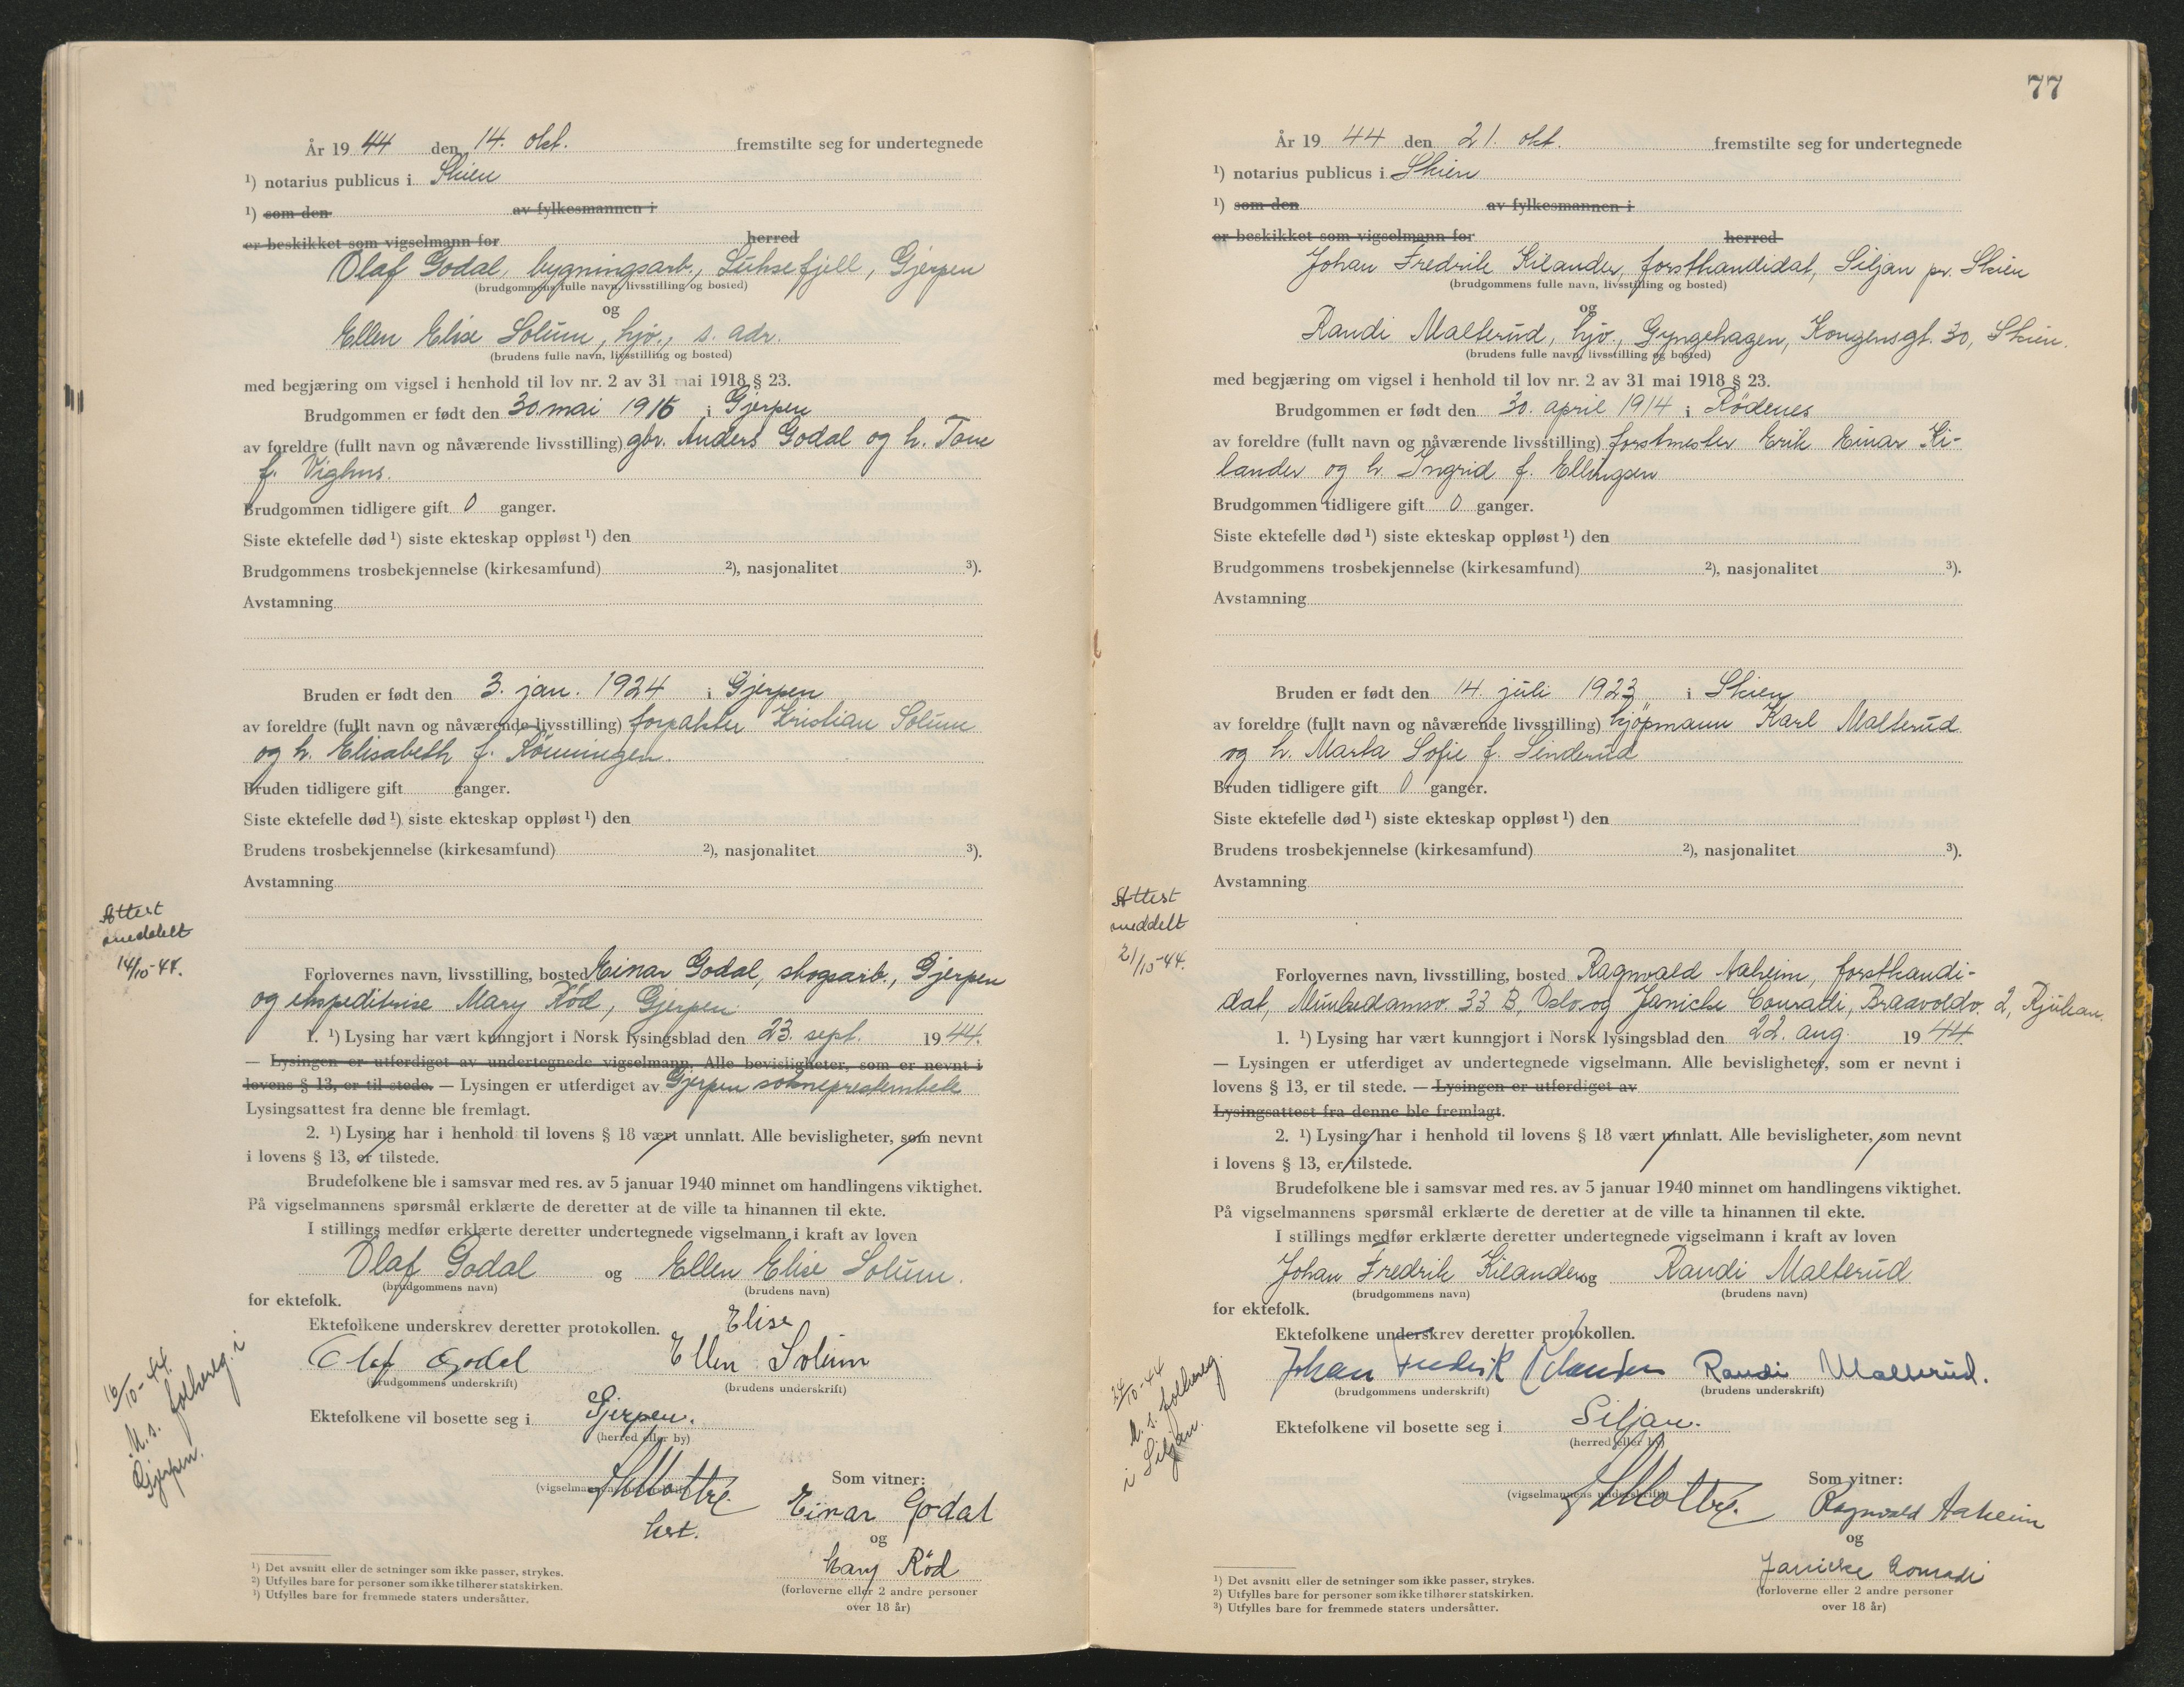 År 1944 den 14. okt. fremstilte seg for undertegnede
¹) notarius publicus i Skien
¹) som den av fylkesmannen i
er beskikket som vigselmann for herred
Olaf Godal, bygningsarb., Luksefjell, Gjerpen
(brudgommens fulle navn, livsstilling og bosted)
og
Ellen Elise Solum, hjv., s. adr.
(brudens fulle navn, livsstilling og bosted)
med begjæring om vigsel i henhold til lov nr. 2 av 31 mai 1918 § 23.
Brudgommen er født den 30. mai 1916 i Gjerpen
av foreldre (fullt navn og nåværende livsstilling) gbr. Anders Godal og h. Tone
f. Vighus.
Brudgommen tidligere gift 0 ganger.
Siste ektefelle død ¹) siste ekteskap oppløst ¹) den
Brudgommens trosbekjennelse (kirkesamfund) ²), nasjonalitet ³).
Avstamning
Bruden er født den 3. jan. 1924 i Gjerpen
av foreldre (fullt navn og nåværende livsstilling) forpakter Kristian Solum
og h. Elisabeth f. Rönningen.
Bruden tidligere gift ganger.
Siste ektefelle død ¹) siste ekteskap oppløst ¹) den
Brudens trosbekjennelse (kirkesamfund) ²), nasjonalitet ³).
Avstamning
Attest
meddelt
14/10-44.
Forlovernes navn, livsstilling, bosted Einar Godal, skogsarb., Gjerpen
og ekspeditrise Mary Rød, Gjerpen.
1. ¹) Lysing har vært kunngjort i Norsk lysingsblad den 23. sept. 1944.
— Lysingen er utferdiget av undertegnede vigselmann. Alle bevisligheter, som er nevnt i
lovens § 13, er til stede. — Lysingen er utferdiget av Gjerpen sokneprestembete
Lysingsattest fra denne ble fremlagt.
2. ¹) Lysing har i henhold til lovens § 18 vært unnlatt. Alle bevisligheter, som nevnt
i lovens § 13, er tilstede.
Brudefolkene ble i samsvar med res. av 5 januar 1940 minnet om handlingens viktighet.
På vigselmannens spørsmål erklærte de deretter at de ville ta hinannen til ekte.
I stillings medfør erklærte deretter undertegnede vigselmann i kraft av loven
Olaf Godal og Ellen Elise Solum.
(brudgommens navn) (brudens navn)
for ektefolk.
Ektefolkene underskrev deretter protokollen.
Elise
Olaf Godal Ellen Solum
(brudgommens underskrift) (brudens underskrift)
16/10-44.
M. s. folkereg. i
Gjerpen.
Ektefolkene vil bosette seg i Gjerpen.
(herred eller by)
(vigselmannens underskrift)
Som vitner:
Einar Godal
og
Mary Rød
(forloverne eller 2 andre personer
over 18 år)
¹) Det avsnitt eller de setninger som ikke passer, strykes.
²) Utfylles bare for personer som ikke tilhører statskirken.
³) Utfylles bare for fremmede staters undersåtter.
77
År 1944 den 21. okt. fremstilte seg for undertegnede
¹) notarius publicus i Skien
¹) som den av fylkesmannen i
er beskikket som vigselmann for herred
Johan Fredrik Kilander, forstkandidat, Siljan pr. Skien
(brudgommens fulle navn, livsstilling og bosted)
og
Randi Malterud, hjv., Gyngehagen, Kongensgt. 30, Skien.
(brudens fulle navn, livsstilling og bosted)
med begjæring om vigsel i henhold til lov nr. 2 av 31 mai 1918 § 23.
Brudgommen er født den 30. april 1914 i Rödenes
av foreldre (fullt navn og nåværende livsstilling) forstmester Erik Einar Ki-
lander og h. Ingrid f. Ellingsen
Brudgommen tidligere gift 0 ganger.
Siste ektefelle død ¹) siste ekteskap oppløst ¹) den
Brudgommens trosbekjennelse (kirkesamfund) ²), nasjonalitet ³).
Avstamning
Bruden er født den 14. juli 1923 i Skien
av foreldre (fullt navn og nåværende livsstilling) kjöpmann Karl Malterud
og h. Marta Sofie f. Sinderud
Bruden tidligere gift 0 ganger.
Siste ektefelle død ¹) siste ekteskap oppløst ¹) den
Brudens trosbekjennelse (kirkesamfund) ²), nasjonalitet ³).
Avstamning
Attest
meddelt
21/10-44.
Forlovernes navn, livsstilling, bosted Ragnvald Aaheim, forstkandi-
dat, Munkedamsv. 33 B, Oslo og Janicke Conradi, Braavoldv. 2, Rjukan.
1. ¹) Lysing har vært kunngjort i Norsk lysingsblad den 22. aug. 1944
— Lysingen er utferdiget av undertegnede vigselmann. Alle bevisligheter, som er nevnt i
lovens § 13, er til stede. — Lysingen er utferdiget av
Lysingsattest fra denne ble fremlagt.
2. ¹) Lysing har i henhold til lovens § 18 vært unnlatt. Alle bevisligheter, som nevnt
i lovens § 13, er tilstede.
Brudefolkene ble i samsvar med res. av 5 januar 1940 minnet om handlingens viktighet.
På vigselmannens spørsmål erklærte de deretter at de ville ta hinannen til ekte.
I stillings medfør erklærte deretter undertegnede vigselmann i kraft av loven
Johan Fredrik Kilander og Randi Malterud
(brudgommens navn) (brudens navn)
for ektefolk.
Ektefolkene underskrev deretter protokollen.
Johan Fredrik Kilander Randi Malterud.
(brudgommens underskrift) (brudens underskrift)
24/10-44
M. s. folkereg.
i Siljan.
Ektefolkene vil bosette seg i Siljan.
(herred eller by)
(vigselmannens underskrift)
Som vitner:
Ragnvald Aaheim
og
Janicke Conradi
(forloverne eller 2 andre personer
over 18 år)
¹) Det avsnitt eller de setninger som ikke passer, strykes.
²) Utfylles bare for personer som ikke tilhører statskirken.
³) Utfylles bare for fremmede staters undersåtter.